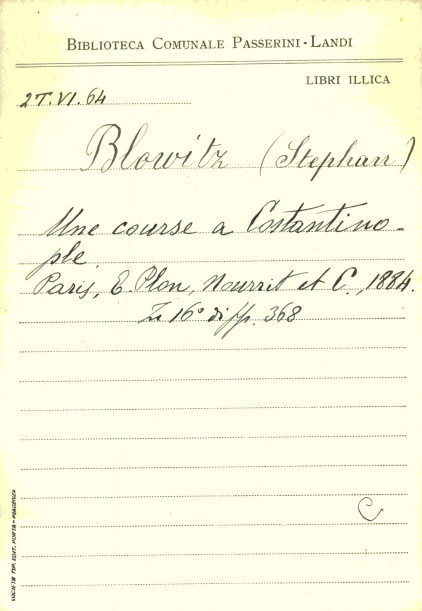 BIBLIOTECA COMUNALE PASSERINI-LANDI
LIBRI ILLICA
2T.VI.64
Blowitz (Stephan)
Une course a Costantino-
ple.
Paris, E. Plon, Nourrit et C., 1884.
In 16° di pp. 368
C
SOCIETÀ TIP. EDIT. PORTA - PIACENZA